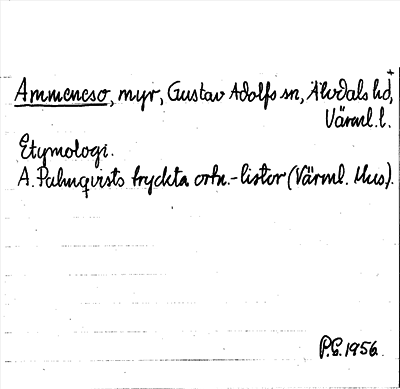 Ammeneso, myr, Gustav Adolfs sn, Älvdals hd,
Värml. l.
Etymologi.
A. Palmqvists tryckta ortn.-listor (Värml. Mus.).
P.G. 1956.